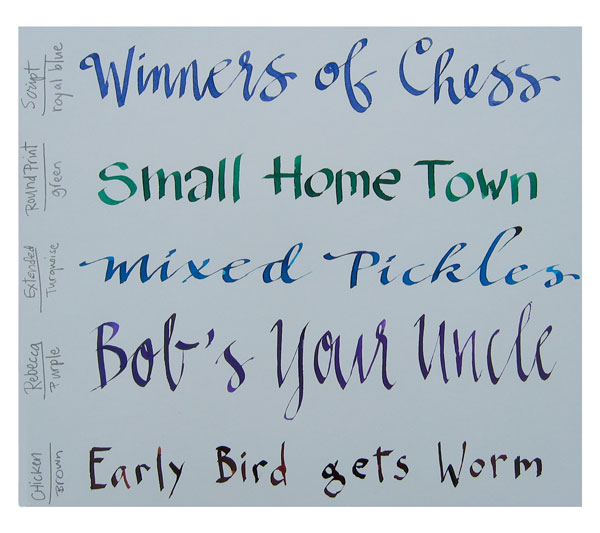 Script
royal blue
Winners of Chess
Round Print
green
Small Home Town
Extended
Turquoise
Mixed Pickles
Rebecca
Purple
Bob's Your Uncle
Chicken
Brown
Early Bird gets Worm